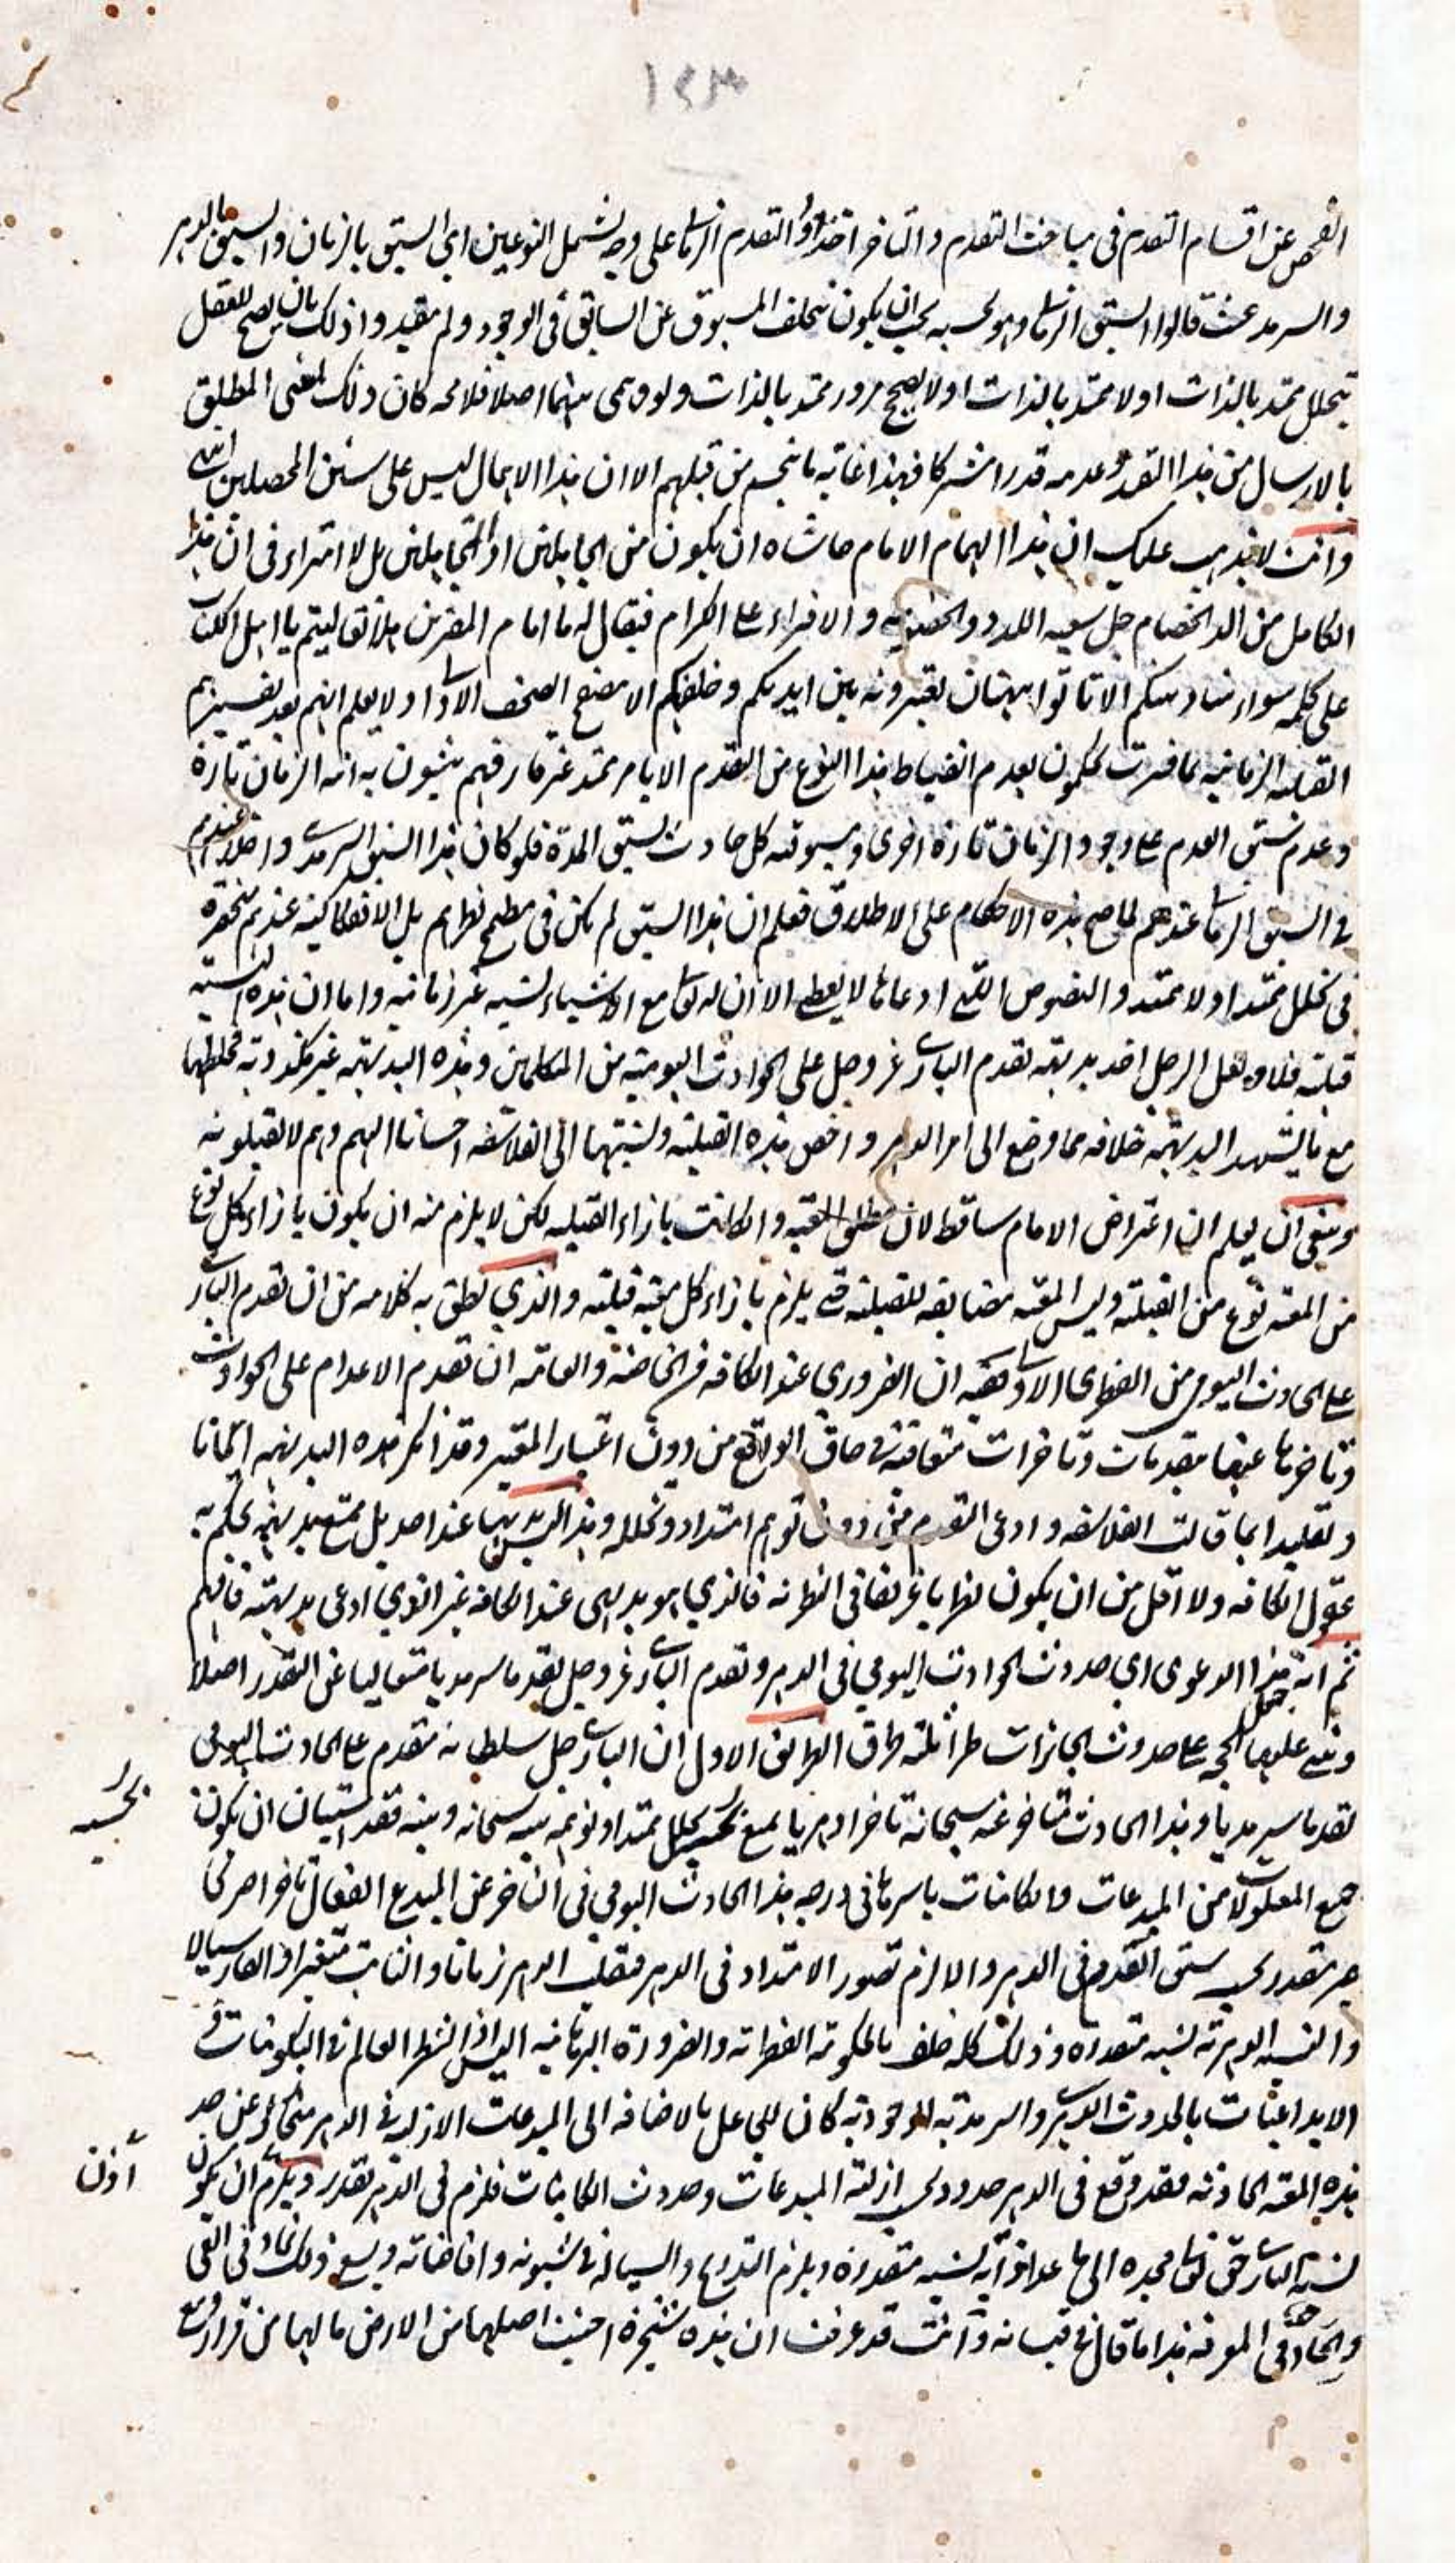 ١٢٣
الفحص عن اقسام التقدم فى مباحث التقدم والتاخر اخذوا التقدم الزمانى على وجه يشمل النوعين اى السبق بالزمان والسبق بالدهر
والسرمد حيث قالوا السبق الزمانى وهو يجب ان يكون تخلف المسبوق عن السابق فى الوجود ولم يقيدوا ذلك بان يصح للعقل
تخلل ممتد بالذات او لا ممتد بالذات او لا يصح مرور ممتد بالذات ولو وهمى بينهما اصلا فلا محه كان ذلك المعنى المطلق
بالارسال من هذا التقدر وعدمه قدرا مشتركا فهذا غاية ما تجسم من قبلهم الا ان هذا الاجمال ليس على سنن المحصلين انتهى
وانت لا يذهب عليك ان هذا الهمام الامام حاشاه ان يكون من الجاهلين او المتجاهلين بل لا امتراء فى ان هذا
الكامل من الد الخصام جل سعيه اللدد والخصومة والافتراء على الكرام فيقال له يا امام المفترين هلا تقا ليتم يا اهل الكتاب
على كلمة سواء بيننا وبينكم الا تاتوا ببهتان تفترونه بين ايديكم وخلفكم الا مضغ الصحف الاولى او لا يعلم انهم بعد تفسيرهم
القبلية الزمانية بما فسرت يحكمون بعدم انضباط هذا النوع من التقدم الا بامر ممتد غير قار فهم يثبتون به انية الزمان تارة
وعدم سبق العدم على وجود الزمان تارة اخرى ومسبوقية كل حادث بسبق المدة فلو كان هذا السبق السرمدى داخلا عندهم
فى السبق الزمانى عندهم لما صح هذه الاحكام على الاطلاق فعلم ان هذا السبق لم يكن فى مطمح نظرهم بل الانفكاكية عندهم منحصرة
فى تخلل ممتد او لا ممتد والنصوص التى ادعاها لا يعطى الا ان له تعالى مع الاشياء نسبة غير زمانية واما ان هذه النسبة
قبلية فلا ولعل الرجل اخذ بديهة تقدم البارى عز وجل على الحوادث اليومية من المتكلمين وهذه البديهة غير مكذوبة فخلطها
مع ما يشهد البديهة خلافه مما وضع الى امر الدهر واخص هذه القبلية ونسبتها الى الفلاسفة احسانا اليهم وهم لا يقبلونه
وينبغى ان يعلم ان اعتراض الامام ساقط لان مطلق المعية وان كانت بازاء القبلية لكن لا يلزم منه ان يكون بازاء كل نوع
من المعية نوع من القبلية وليس المعية مضايفة للقبلية حتى يلزم بازاء كل معية قبلية والذى نطق به كلامه من ان تقدم البارى
على الحادث اليومى من الفطرى الاولى ففيه ان الضرورى عند الكافة من الخاصة والعامة ان تقدم الاعدام على الحوادث
وتاخرها عنها تقدمات وتاخرات متعاقبة فى حاق الواقع من دون اعتبار المعتبر وقد انكر هذه البديهة ايمانا
وتقليدا بما قالت الفلاسفة وادعى التقدم من دون توهم امتداد وتخلله وهذا ليس بديهيا عند احد بل تمنع بديهة يحكم به
عقول الكافة ولا اقل من ان يكون نظريا غريقا فى النظرية فالذى هو بديهى عند الكافة غير الذى ادعى بديهته فافهم
ثم انه جعل هذا الدعوى اى حدوث الحوادث اليومى فى الدهر وتقدم البارى عز وجل تقدما سرمديا متعاليا عن التقدر اصلا
وبنى عليها الحجة على حدوث الجائزات طرا ثلثة طرق الطريق الاول ان البارى جل سلطانه متقدم على الحادث اليومى
تقدما سرمديا وهذا الحادث متاخر عنه سبحانه تاخرا دهريا يمنع بحسبه تخلل ممتد او توهمه بينه سبحانه وبينه فقد استبان ان يكون
جميع المعلولات من المبدعات والكائنات باسرها فى درجة هذا الحادث اليومى فى التاخر عن المبدع الفعال تاخرا صريحا
غير متقدر بحسب سبق العدم فى الدهر والا لزم تصور الامتداد فى الدهر فيقلب الدهر زمانا والثابت متغيرا والقار سيالا
والنسبة الدهرية نسبة متقدرة وذلك كله خلف بالحكومة الفطرية والضرورة البرهانية اليس اذا انشطر العالم فى التكوينات
الابداعيات بالحدوث الدهرى والسرمدية الوجودية كان للجاعل بالاضافة الى المبدعات الازلية فى الدهر متحاز عن حد
هذه المعية الحادثة فقد وقع فى الدهر حدود بحسب ازلية المبدعات وحدوث الكائنات فلزم فى الدهر تقدر ويلزم ان يكون
نسبة البارى حق تعالى مجده الى ما عدا ذاته نسبة متقدرة ويلزم التدريج والسيالة فى شئونه وافاضاته ويسع ذلك تماد فى الغى
والحاد فى المعرفة هذا ما قال فى قبساته وانت قد عرفت ان هذه شجرة اجتثت اصلها من الارض ما لها من قرار
بحسبه
اذن